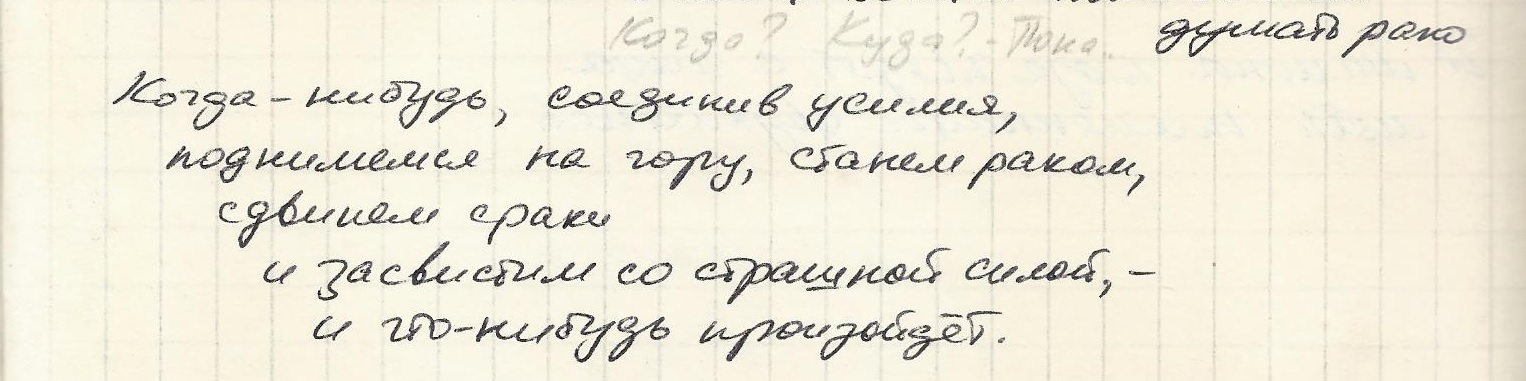 Когда? Куда? - Пока.
думать рано
Когда-нибудь, соединив усилия,
поднимемся на гору, станем раком,
сдвинем сраки
и засвистим со страшной силой,–
и что-нибудь произойдёт.